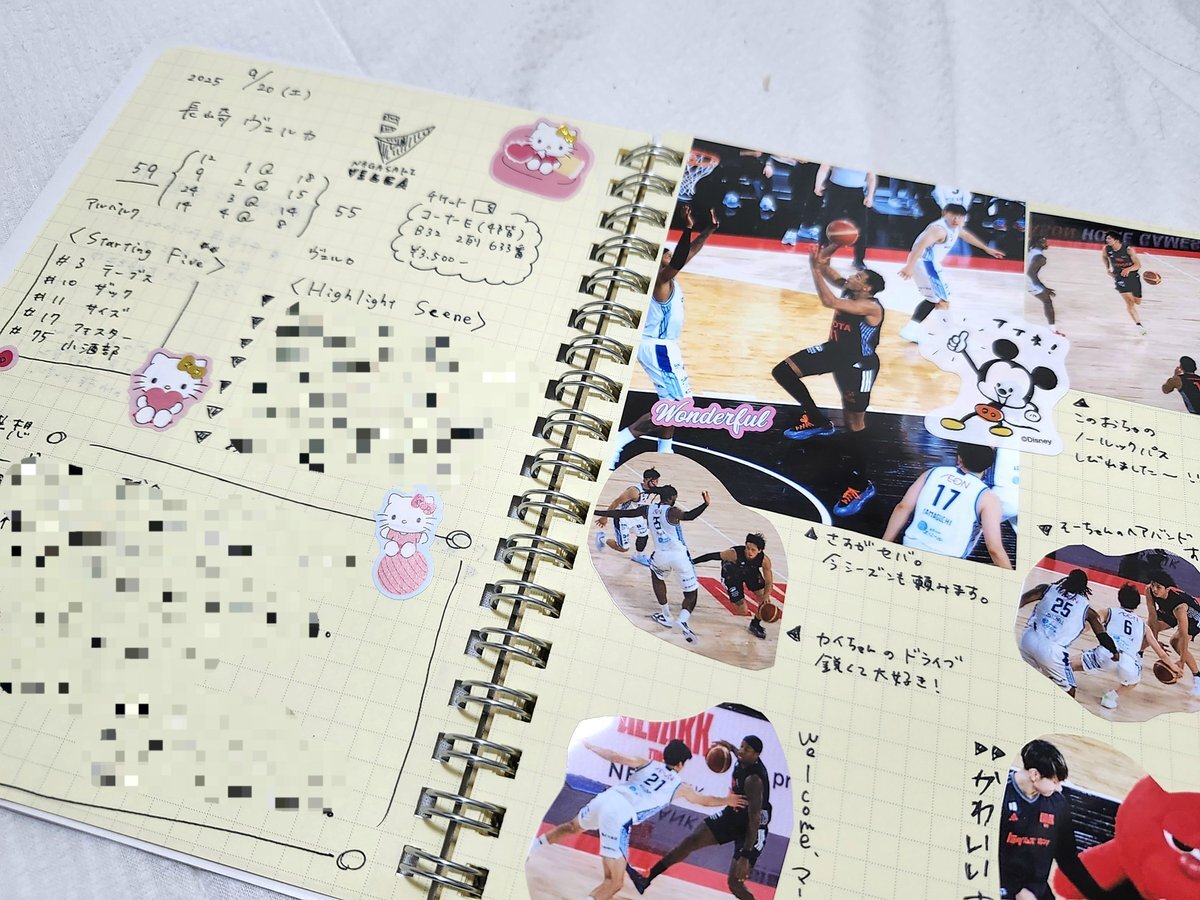 2025 9/20 (土)
長崎 ヴェルカ
NAGASAKI
VELCA
59
12 1Q 18
9 2Q 15
24 3Q 14
14 4Q 8
55
アルバルク
ヴェルカ
チケット
コーナーE (4階)
B32 2列 633番
¥3,500-
<Starting Five>
#3 テーブス
#10 ザック
#11 サイズ
#17 フェスター
#75 小酒部
<Highlight Scene>
想
Wonderful
17
YAMAGUCHI
AEON
HOME GAMES
©Disney
このおちゃの
ノールックパス
しびれました〜!!
さすがセバ。
今シーズンも頼みます。
そーちゃんのヘアバンド
25
6
カイちゃんのドライブ
鋭くて大好き!
21
Welcome、マー
かわいい